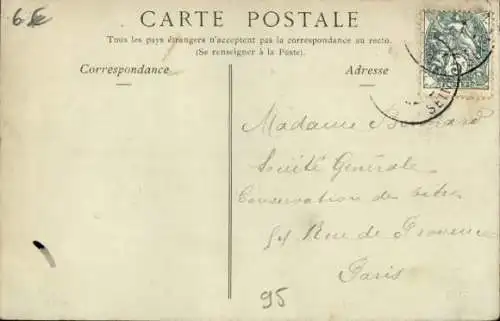 6€
CARTE POSTALE
Tous les pays étrangers n'acceptent pas la correspondance au recto.
(Se renseigner à la Poste).
Correspondance
Adresse
SEINE
Madame Bernard
Société Générale
Conservation des titres
54 Rue de Provence
Paris
95